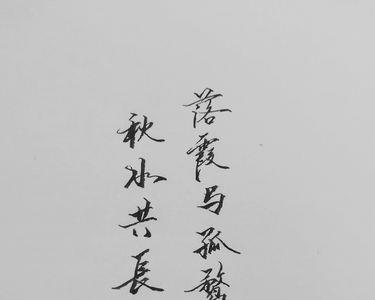 落霞与孤鹜
秋水共長